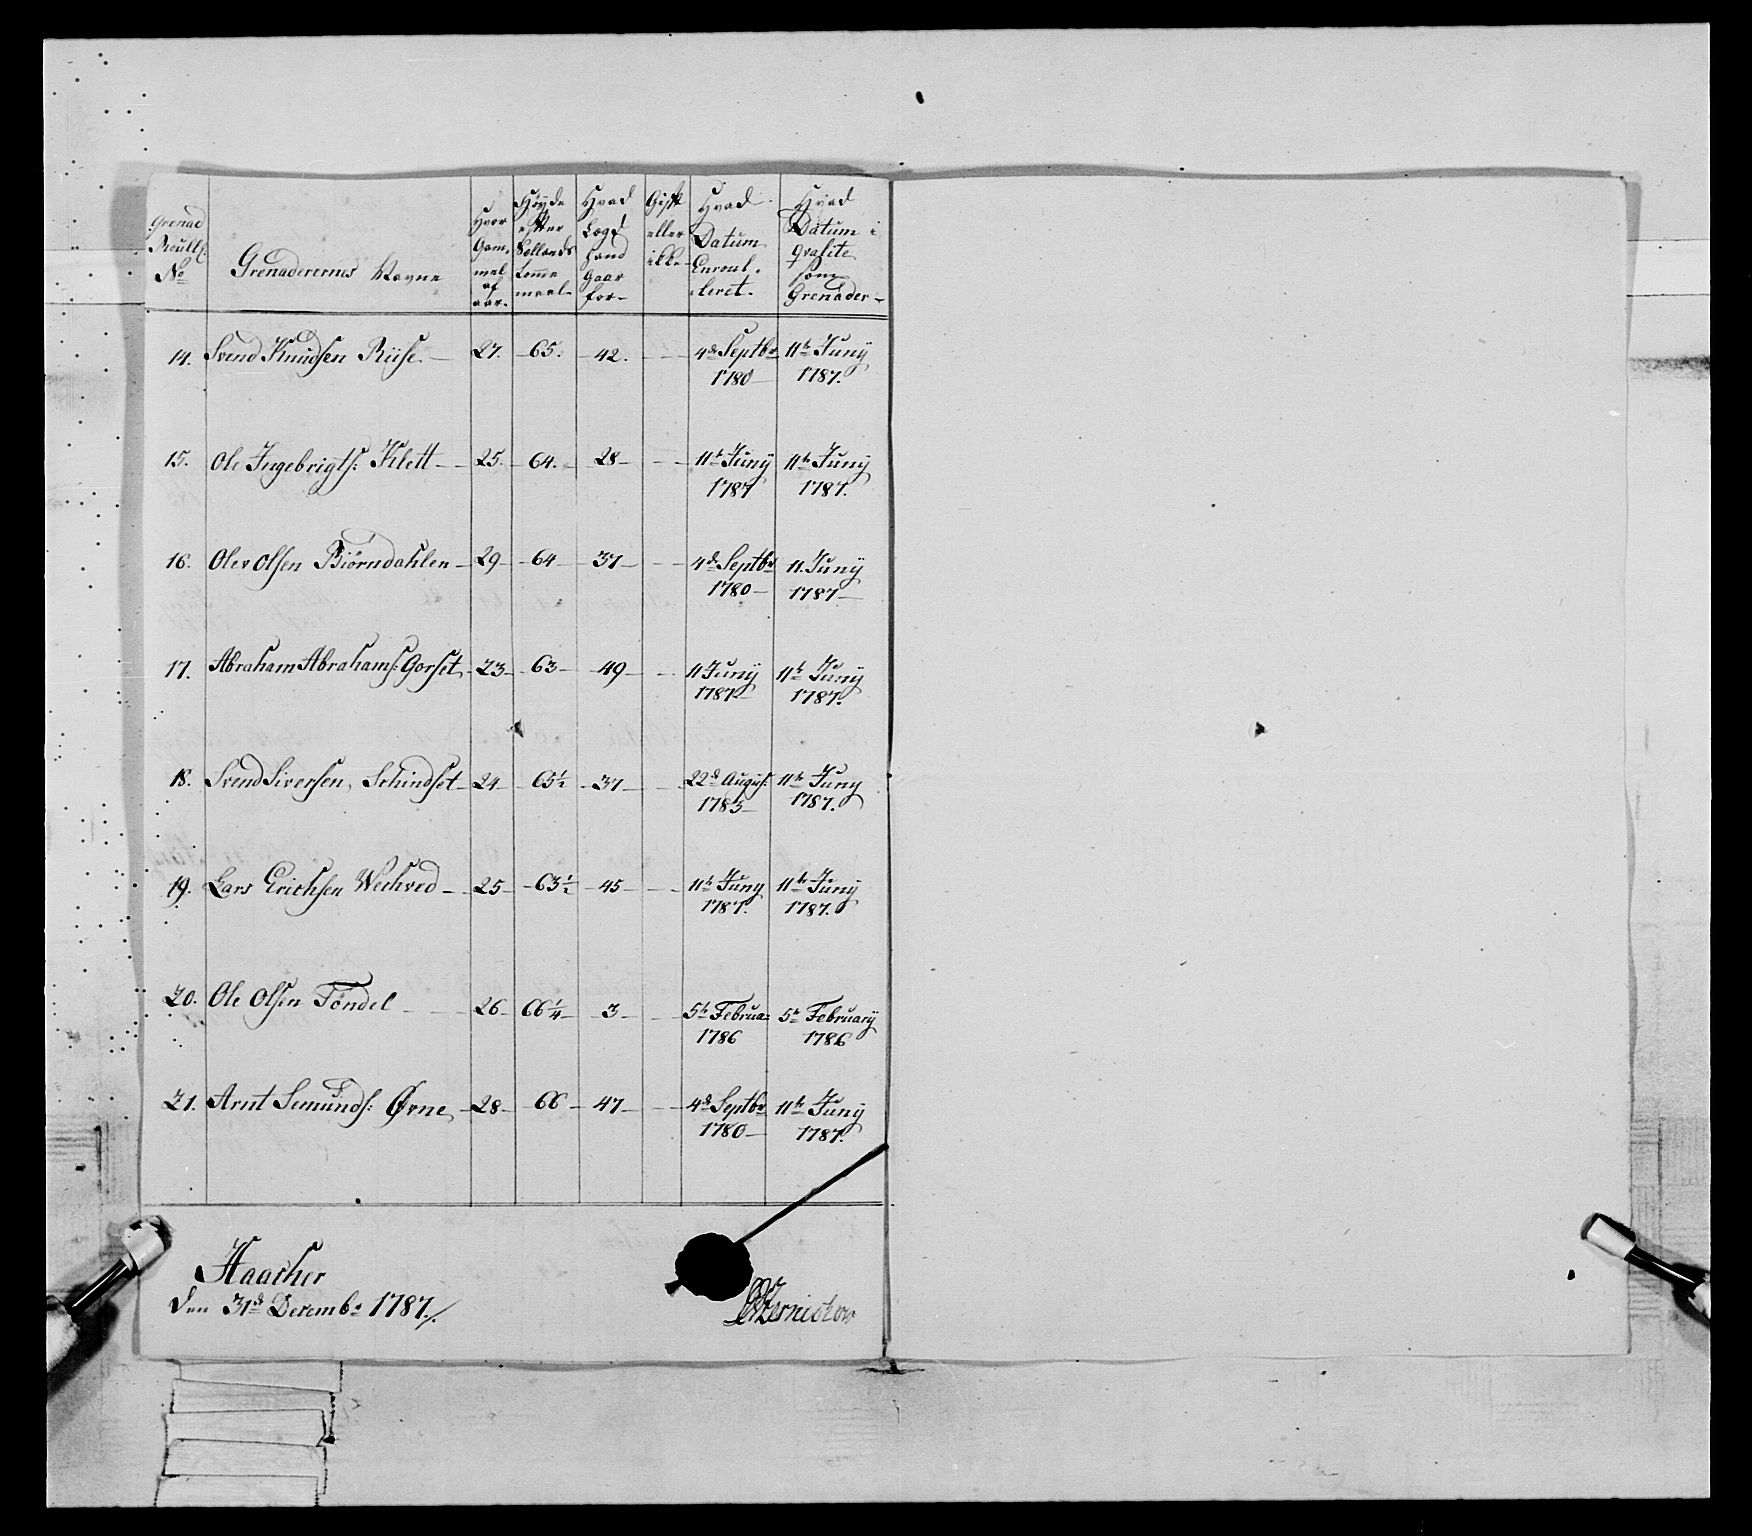 Grenad Roull: No | Grenaderernes Navne | Hvor Gam- mel af aar. | Höyde efter Sollands Tomme maal. | Hvad Lægd hand Gaar for | Gift eller ikke | Hvad Datum Enroul- leret. | Hvad Datum i qvalite som Grenader
14. Svend Knudsen Riise. 27. 65. 42. 4de Septbr 1780 11te Juny 1787.
15. Ole Ingebrigts: Klett 25. 64. 28 11te Juny 1787 11te Juny 1787.
16. Ole Olsen Biörndahlen 29 64 37 4de Septbr 1780 11. Juny 1787
17. Abraham Abrahams: Gorset 23 63 49 11 Juny 1787 11te Juny 1787.
18. Svend Siversen Schindset 24 65½ 37 22de August: 1785 11te Juny 1787.
19. Lars Erichsen Wechved 25 63½ 45 11te Juny 1787. 11te Juny 1787.
20. Ole Olsen Töndel 26 66¼ 3 5te Februa: 1786 5te February 1786
21. Arnt Semunds: Ørne 28 66 47 4de Septbr 1780 11te Juny 1787.
Haacher
den 31de Decembr 1787.